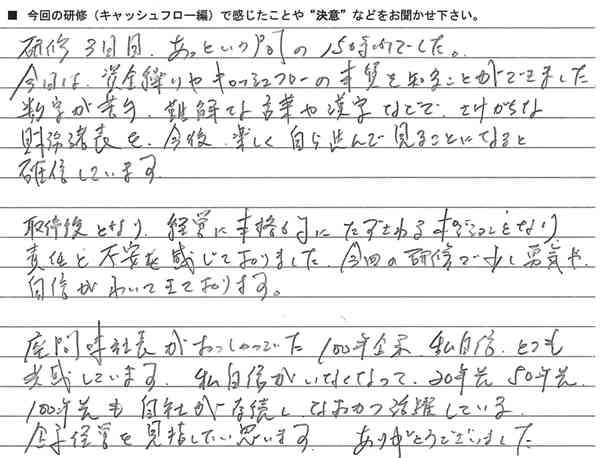 ■ 今回の研修（キャッシュフロー編）で感じたことや“決意”などをお聞かせ下さい。
研修3日目、あっという間の1日でした。
今回は、資金繰りやキャッシュフローの本質を知ることができました
数字が苦手、難解な言葉や漢字などで、さけがちな
財務諸表を、今後、楽しく自ら進んで見ることになると
確信しています
取締役となり、経営に本格的にたずさわる ことなり
責任と不安を感じておりました。今回の研修で少し勇気や
自信がわいてきております。
社長がおっしゃっていた100年企業 私自信、とても
共感しています。私自信がいなくなって、20年先 50年先、
100年先も自社が存続し、なおかつ活躍している、
経営を目指したい思います ありがとうございました